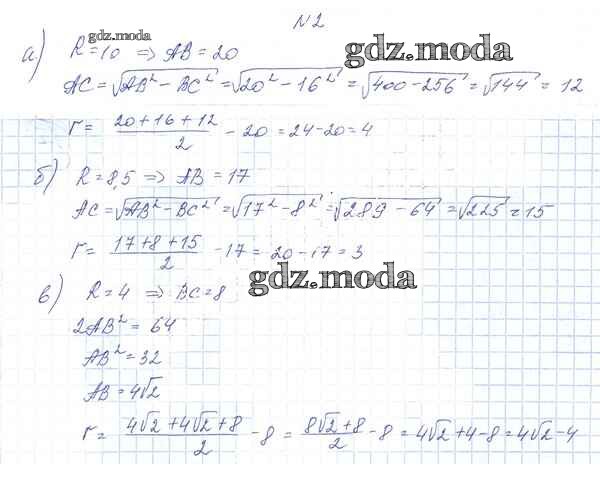 N2
gdz.moda
gdz.moda
а) R=10 ⇒ AB=20
AC=√(AB²−BC²)=√(20²−16²)=√(400−256)=√144=12
r= (20+16+12)/2 − 20=24−20=4
б) R=8,5 ⇒ AB=17
AC=√(AB²−BC²)=√(17²−8²)=√(289−64)=√225=15
r= (17+8+15)/2 −17=20−17=3
gdz.moda
в) R=4 ⇒ BC=8
2AB²=64
AB²=32
AB=4√2
r= (4√2+4√2+8)/2 −8 = (8√2+8)/2 −8=4√2+4−8=4√2−4
gdz.moda